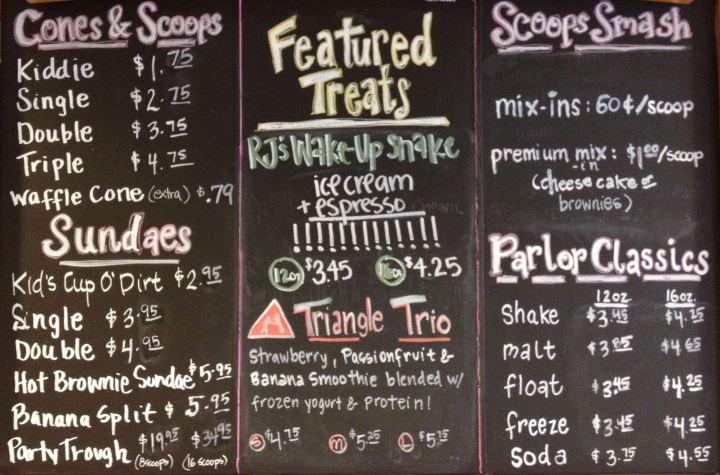 Cones & Scoops
Kiddie $1.75
Single $2.75
Double $3.75
Triple $4.75
Waffle Cone (extra) $.79
Sundaes
Kid's Cup O' Dirt $2.95
Single $3.95
Double $4.95
Hot Brownie Sundae $5.95
Banana Split $5.95
Party Trough $19.95 $34.95
(8 scoops) (16 scoops)
Featured
Treats
RJ's Wake-Up Shake
ice cream
+ espresso
!!!!!!!!!!!!!
12oz $3.45 16oz $4.25
Triangle Trio
Strawberry, Passionfruit &
Banana Smoothie blended w/
frozen yogurt & Protein!
S $4.75 M $5.25 L $5.75
Scoops Smash
mix-ins: 60¢/scoop
premium mix-in: $1.00/scoop
(cheesecake or
brownies)
Parlor Classics
12oz. 16oz.
Shake $3.45 $4.25
malt $3.85 $4.65
float $3.45 $4.25
freeze $3.45 $4.25
Soda $3.75 $4.55